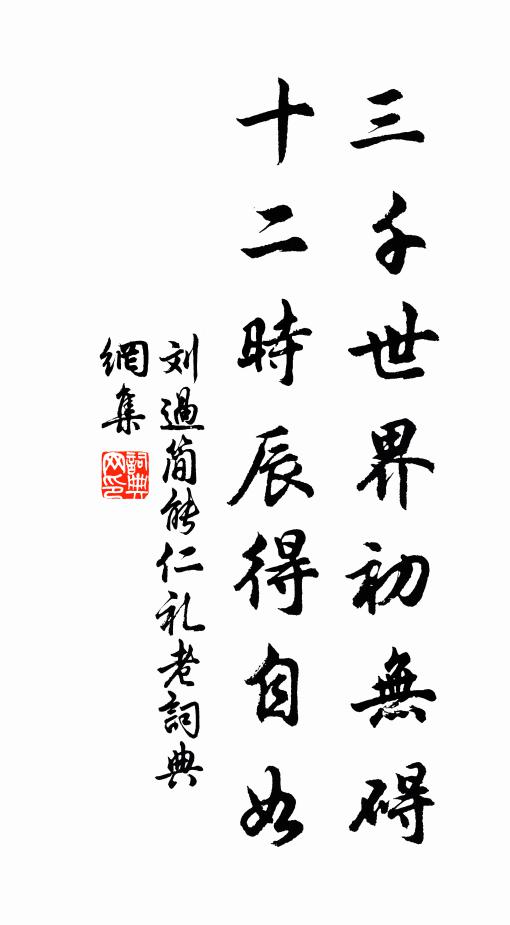 三千世界初無碍
十二時辰得自如
刘過简能仁礼老詞典
網集
詞典
网印